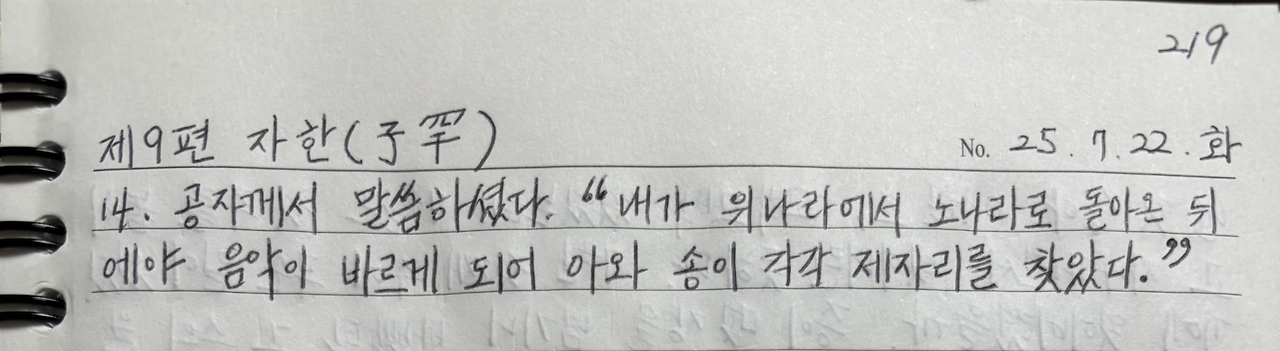 219
제9편 자한(子罕) No. 25. 7. 22. 화
14. 공자께서 말씀하셨다. "내가 위나라에서 노나라로 돌아온 뒤
에야 음악이 바르게 되어 아와 송이 각각 제자리를 찾았다."